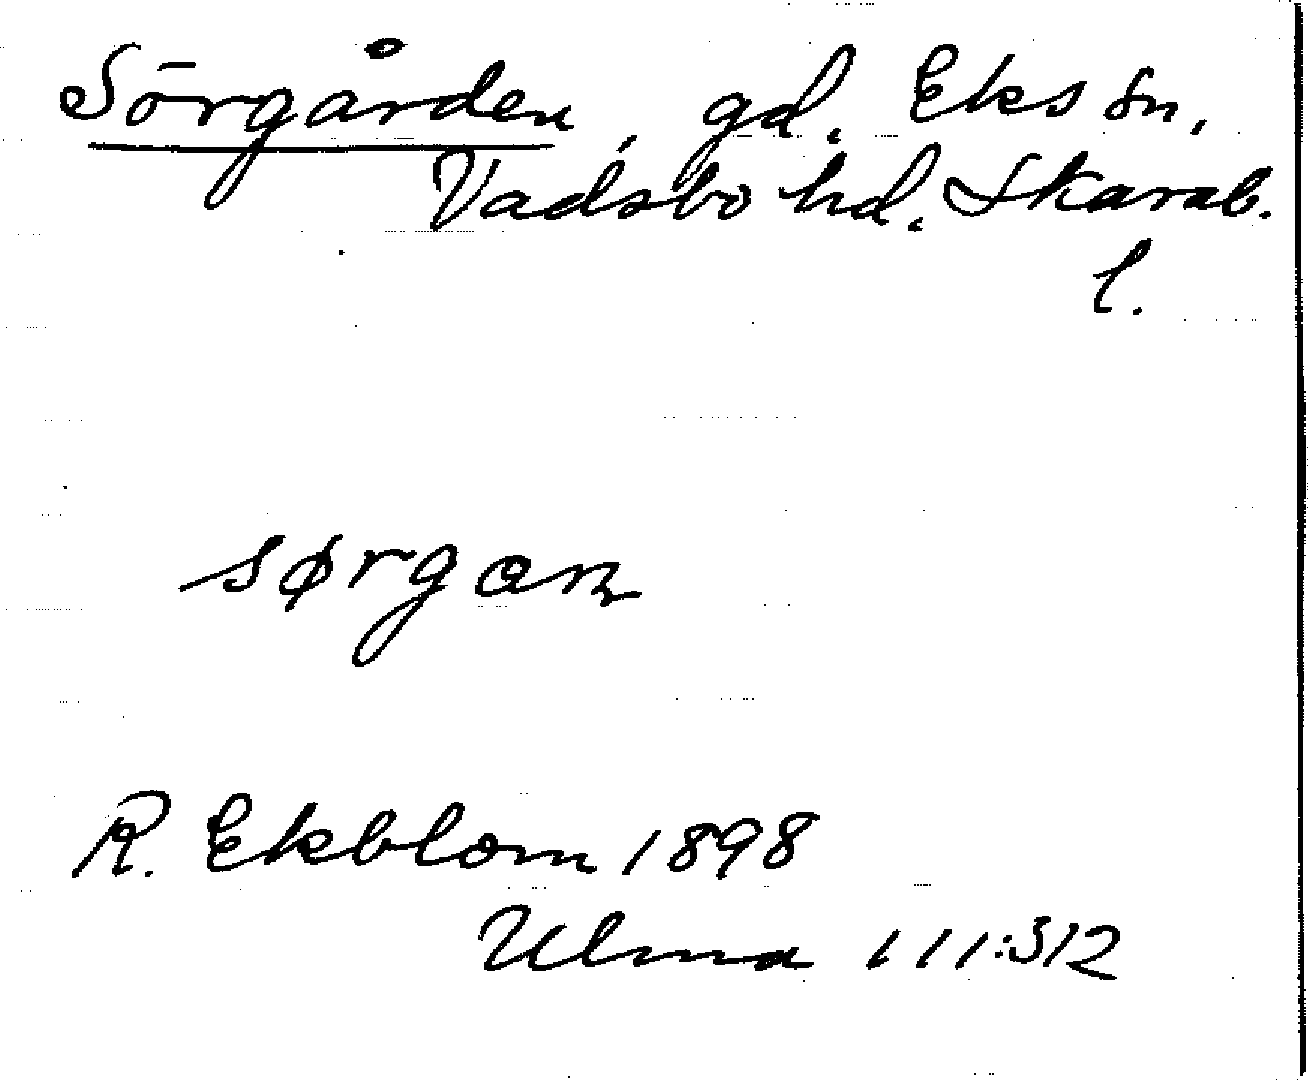 Sörgården, gd. Eks sn,
Vadsbo hd. Skarab.
l.
sørgan
R. Ekblom 1898
Ulma 111:312